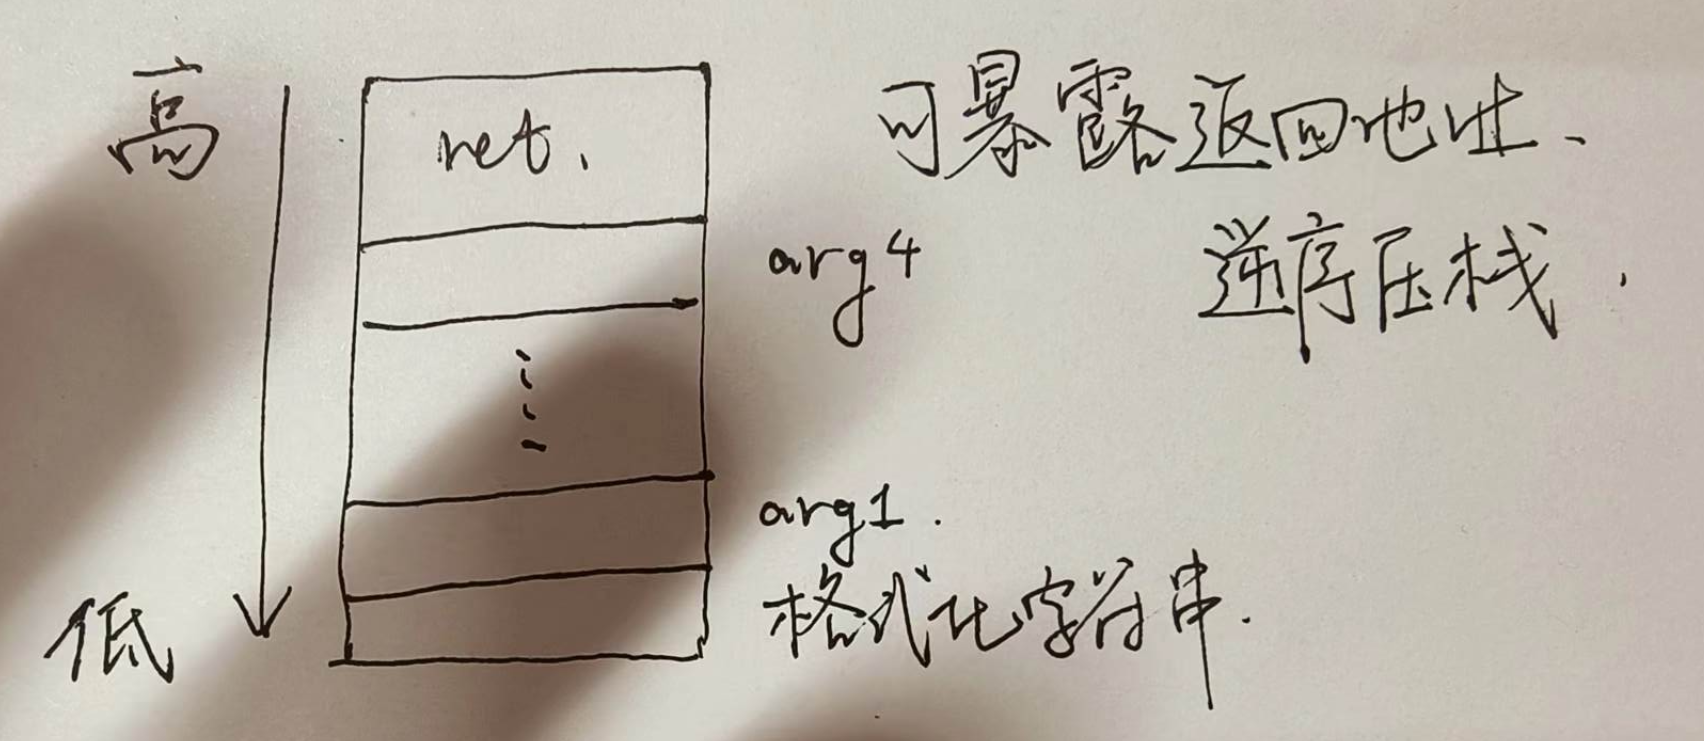 高 ret. 可暴露返回地址、
arg4 逆序压栈.
arg1.
低 格式化字符串.